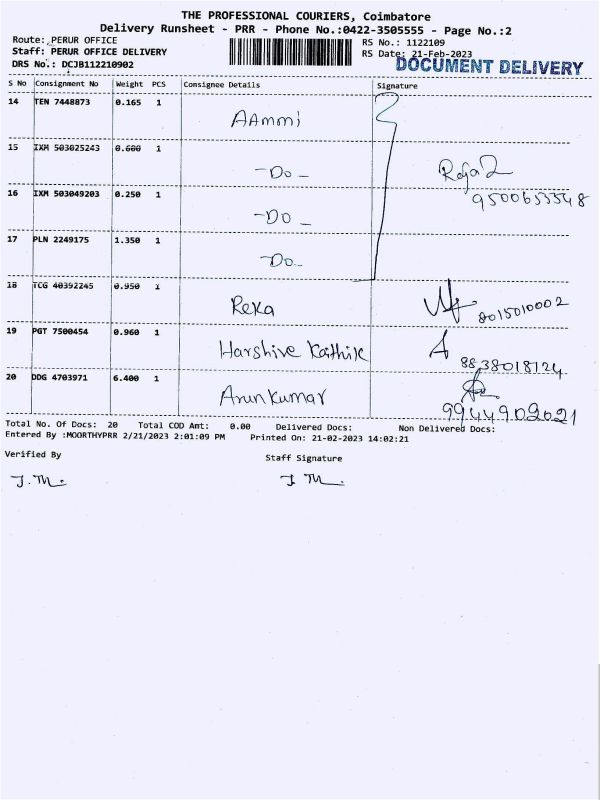 THE PROFESSIONAL COURIERS, Coimbatore
Delivery Runsheet - PRR - Phone No.:0422-3505555 - Page No.:2
Route: PERUR OFFICE
RS No.: 1122109
Staff: PERUR OFFICE DELIVERY
RS Date: 21-Feb-2023
DRS No.: DCJB112210902
DOCUMENT DELIVERY
S No Consignment No Weight PCS Consignee Details Signature
14 TEN 7448873 0.165 1 AAmmi
15 IXM 503025243 0.600 1 -Do- Roja
9500653548
16 IXM 503049203 0.250 1 -Do-
17 PLN 2249175 1.350 1 -Do-
18 TCG 40392245 0.950 1 Reka 8015010002
19 PGT 7500454 0.960 1 Harshive Kathik 8838018124
20 DDG 4703971 6.400 1 Arunkumar
9944902021
Total No. Of Docs: 20 Total COD Amt: 0.00 Delivered Docs: Non Delivered Docs:
Entered By :MOORTHYPRR 2/21/2023 2:01:09 PM Printed On: 21-02-2023 14:02:21
Verified By Staff Signature
J. M. J M.